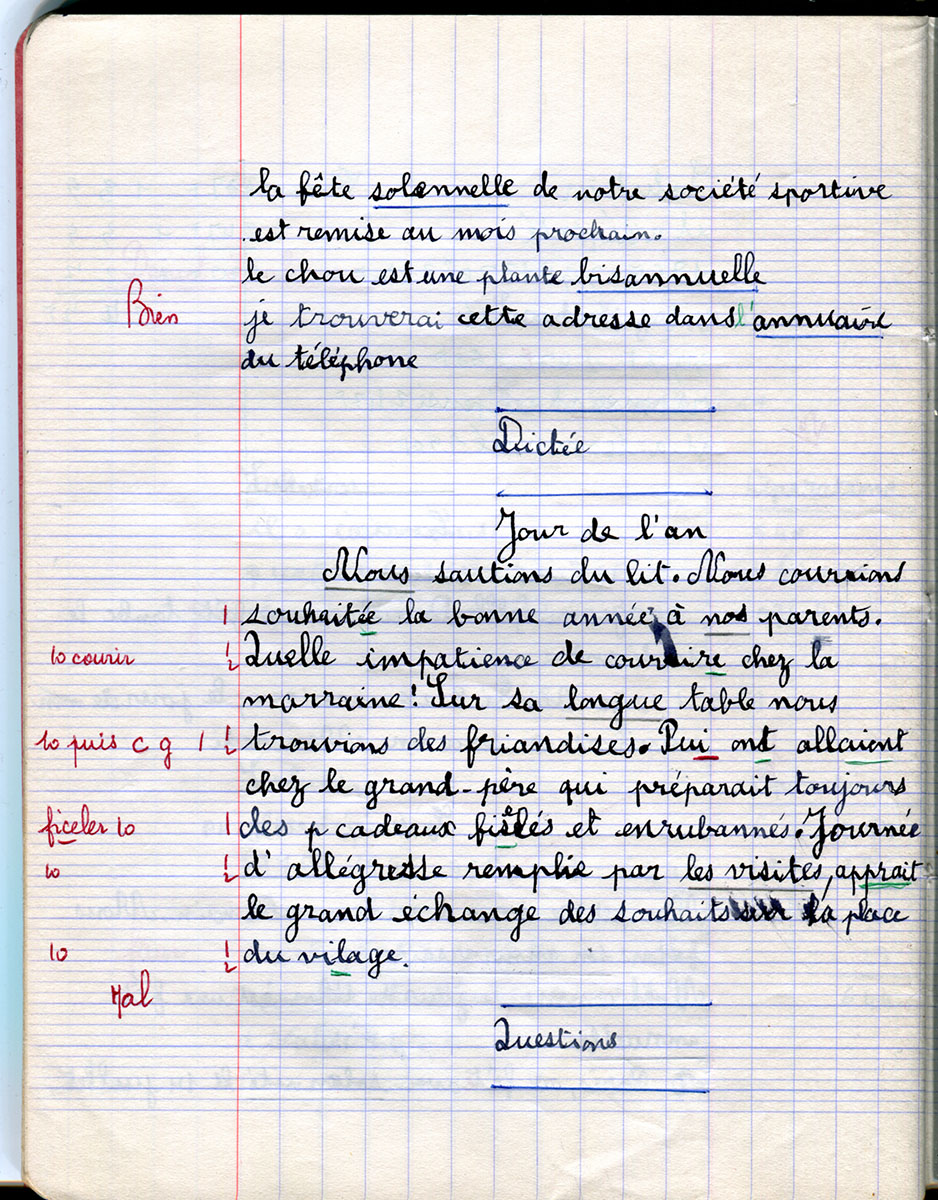 la fête solennelle de notre société sportive
est remise au mois prochain.
le chou est une plante bisannuelle
Bien je trouverai cette adresse dans l'annuaire
du téléphone
Dictée
Jour de l'an
Nous sautions du lit. Nous courrions
1 souhaitée la bonne année à nos parents.
10 courir Quelle impatience de courire chez la
marraine! Sur sa longue table nous
10 puis c g 1 trouvions des friandises. Pui ont allaient
chez le grand-père qui préparait toujours
ficeler 10 1 des p cadeaux fislés et enrubannés. Journée
10 d'allégresse remplie par les visites, apprait
le grand échange des souhaits sur la place
10 du vilage.
Mal
Questions